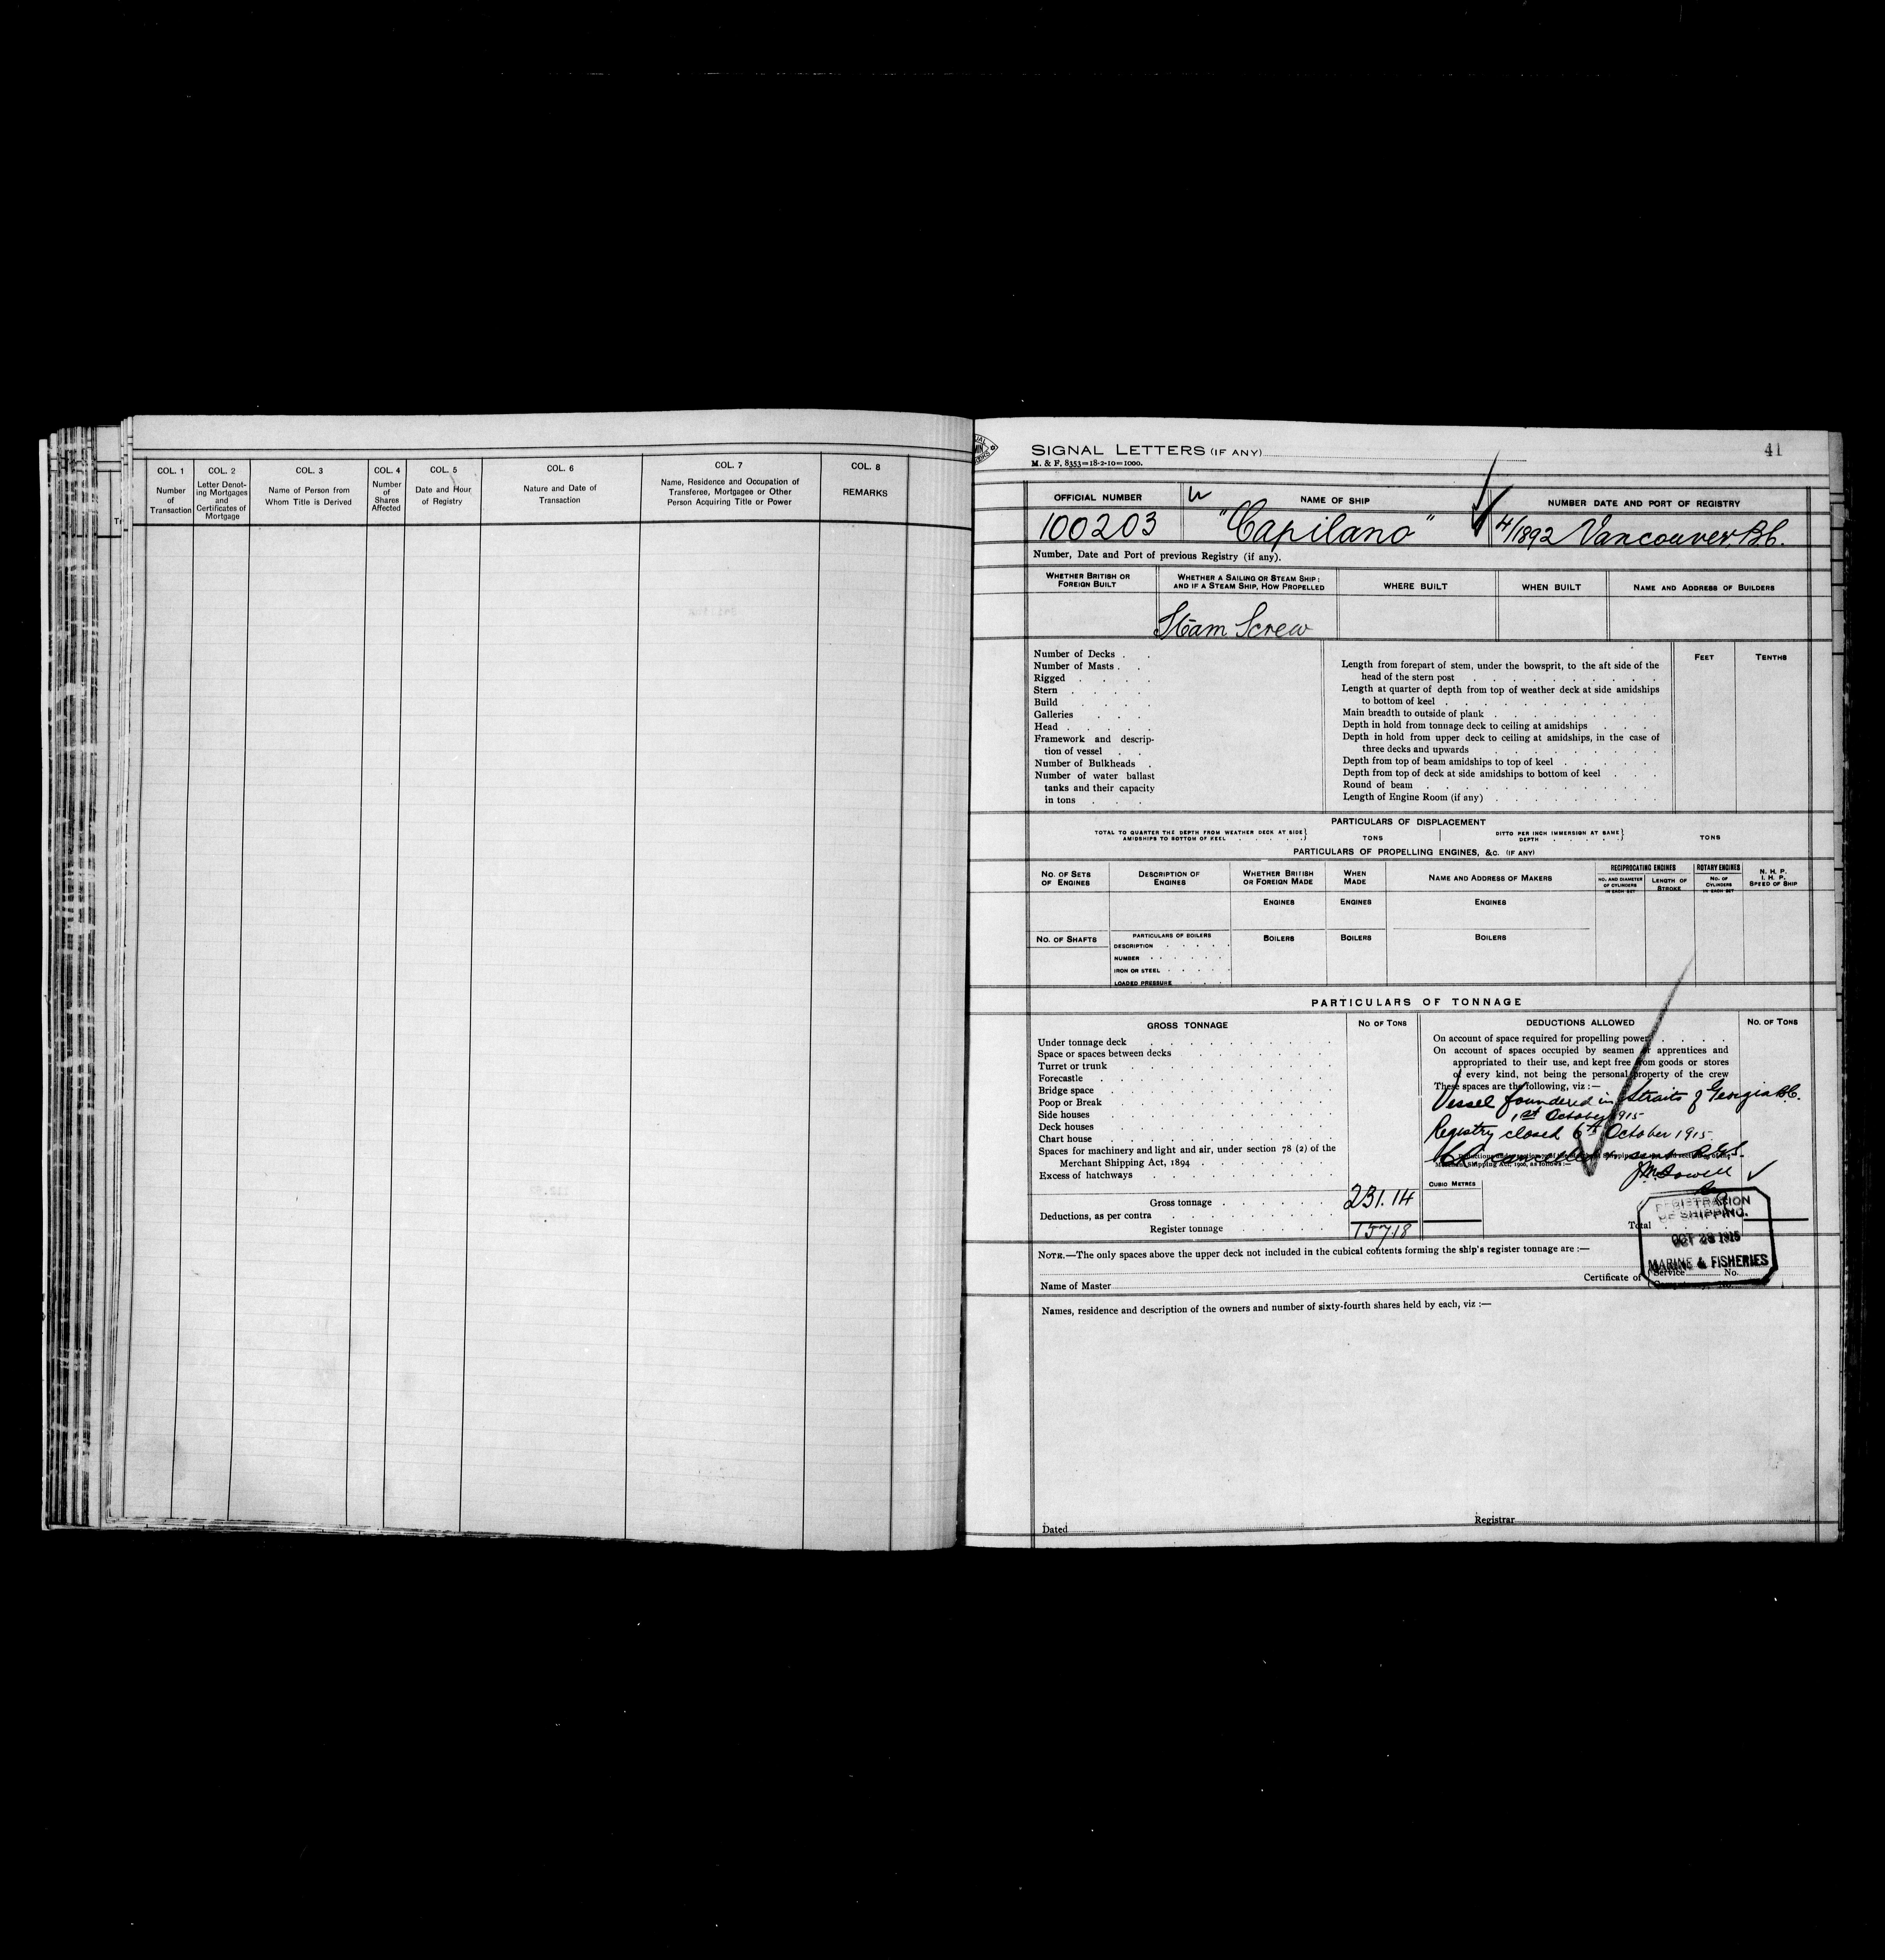 COL. 1
Number
of
Transaction
COL. 2
Letter Denot-
ing Mortgages
and
Certificates of
Mortgage
COL. 3
Name of Person from
Whom Title is Derived
COL. 4
Number
of
Shares
Affected
COL. 5
Date and Hour
of Registry
COL. 6
Nature and Date of
Transaction
COL. 7
Name, Residence and Occupation of
Transferee, Mortgagee or Other
Person Acquiring Title or Power
COL. 8
REMARKS
41
SIGNAL LETTERS (IF ANY)
M. & F. 8353=18-2-10=1000.
OFFICIAL NUMBER
NAME OF SHIP
NUMBER DATE AND PORT OF REGISTRY
100203
"Capilano"
4/1892 Vancouver, B.C.
Number, Date and Port of previous Registry (if any).
WHETHER BRITISH OR
FOREIGN BUILT
WHETHER A SAILING OR STEAM SHIP:
AND IF A STEAM SHIP, HOW PROPELLED
WHERE BUILT
WHEN BUILT
NAME AND ADDRESS OF BUILDERS
Steam Screw
Number of Decks . .
Number of Masts . .
Rigged . . . .
Stern . . . .
Build . . . .
Galleries . . .
Head . . . .
Framework and descrip-
tion of vessel . .
Number of Bulkheads .
Number of water ballast
tanks and their capacity
in tons . . .
FEET
TENTHS
Length from forepart of stem, under the bowsprit, to the aft side of the
head of the stern post
Length at quarter of depth from top of weather deck at side amidships
to bottom of keel
Main breadth to outside of plank
Depth in hold from tonnage deck to ceiling at amidships
Depth in hold from upper deck to ceiling at amidships, in the case of
three decks and upwards
Depth from top of beam amidships to top of keel
Depth from top of deck at side amidships to bottom of keel
Round of beam
Length of Engine Room (if any)
PARTICULARS OF DISPLACEMENT
TOTAL TO QUARTER THE DEPTH FROM WEATHER DECK AT SIDE
AMIDSHIPS TO BOTTOM OF KEEL
TONS
DITTO PER INCH IMMERSION AT SAME
DEPTH
TONS
PARTICULARS OF PROPELLING ENGINES, &c. (IF ANY)
NO. OF SETS
OF ENGINES
DESCRIPTION OF
ENGINES
WHETHER BRITISH
OR FOREIGN MADE
WHEN
MADE
NAME AND ADDRESS OF MAKERS
RECIPROCATING ENGINES
NO. AND DIAMETER
OF CYLINDERS
IN EACH SET
LENGTH OF
STROKE
ROTARY ENGINES
NO. OF
CYLINDERS
IN EACH SET
N. H. P.
I. H. P.
SPEED OF SHIP
ENGINES
ENGINES
ENGINES
NO. OF SHAFTS
PARTICULARS OF BOILERS
DESCRIPTION
NUMBER
IRON OR STEEL
LOADED PRESSURE
BOILERS
BOILERS
BOILERS
PARTICULARS OF TONNAGE
GROSS TONNAGE
NO OF TONS
DEDUCTIONS ALLOWED
NO. OF TONS
Under tonnage deck
Space or spaces between decks
Turret or trunk
Forecastle
Bridge space
Poop or Break
Side houses
Deck houses
Chart house
Spaces for machinery and light and air, under section 78 (2) of the
Merchant Shipping Act, 1894
Excess of hatchways
Gross tonnage
231.14
Deductions, as per contra
Register tonnage
157.18
On account of space required for propelling power
On account of spaces occupied by seamen or apprentices and
appropriated to their use, and kept free from goods or stores
of every kind, not being the personal property of the crew
These spaces are the following, viz :—
Vessel foundered in Straits of Georgia B.C.
1st October 1915
Registry closed 6th October 1915.
Merchant Shipping Act, 1906, as follows:—
CUBIC METRES
Total
REGISTRATION
OF SHIPPING.
OCT 28 1915
MARINE & FISHERIES
NOTE.—The only spaces above the upper deck not included in the cubical contents forming the ship's register tonnage are :—
Name of Master
Certificate of
Service No.
Names, residence and description of the owners and number of sixty-fourth shares held by each, viz :—
Dated
Registrar